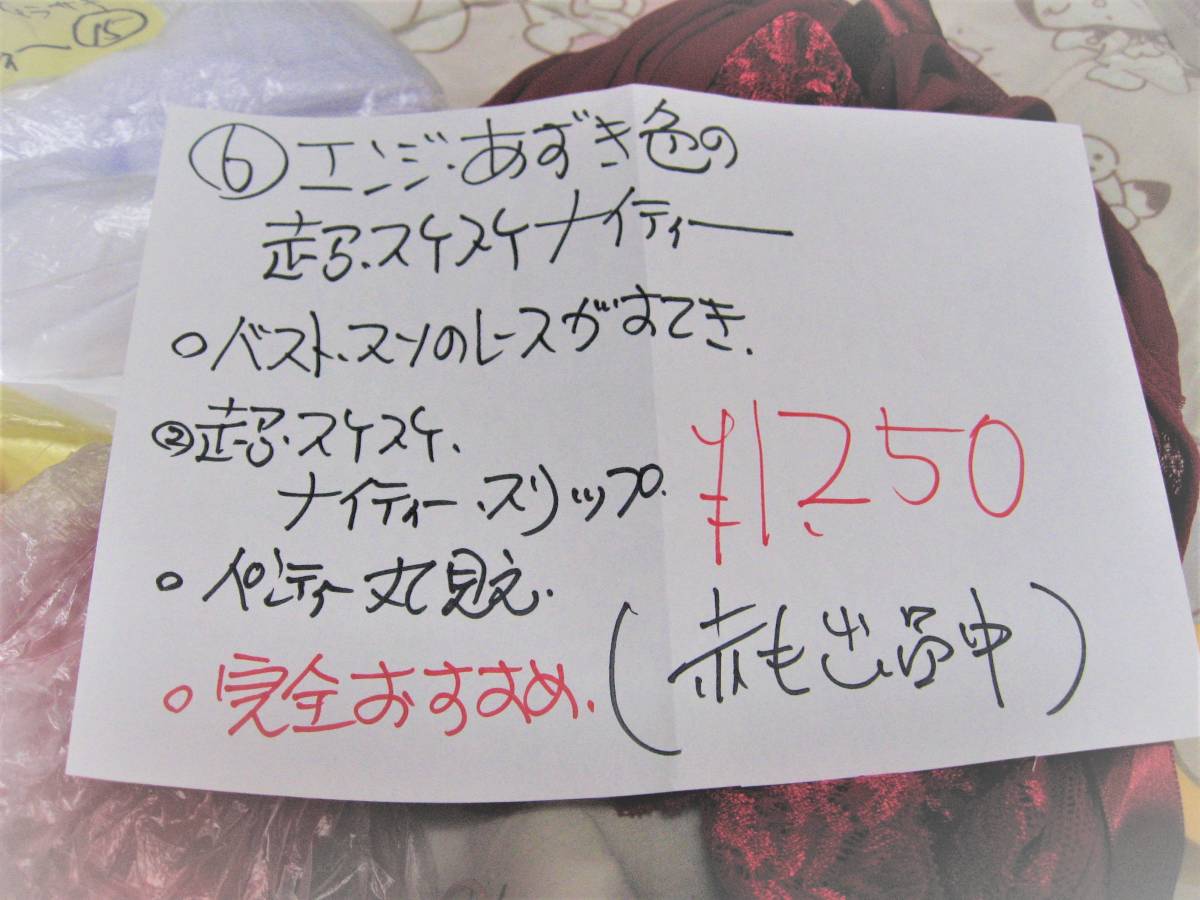 ⑮
⑥エンジ・あずき色の
超・スケスケナイティー
○バスト・スソのレースがすてき.
②超・スケスケ.
ナイティー・スリップ.
○パンティー丸見え.
○完全おすすめ.
¥1,250
(赤も出品中)